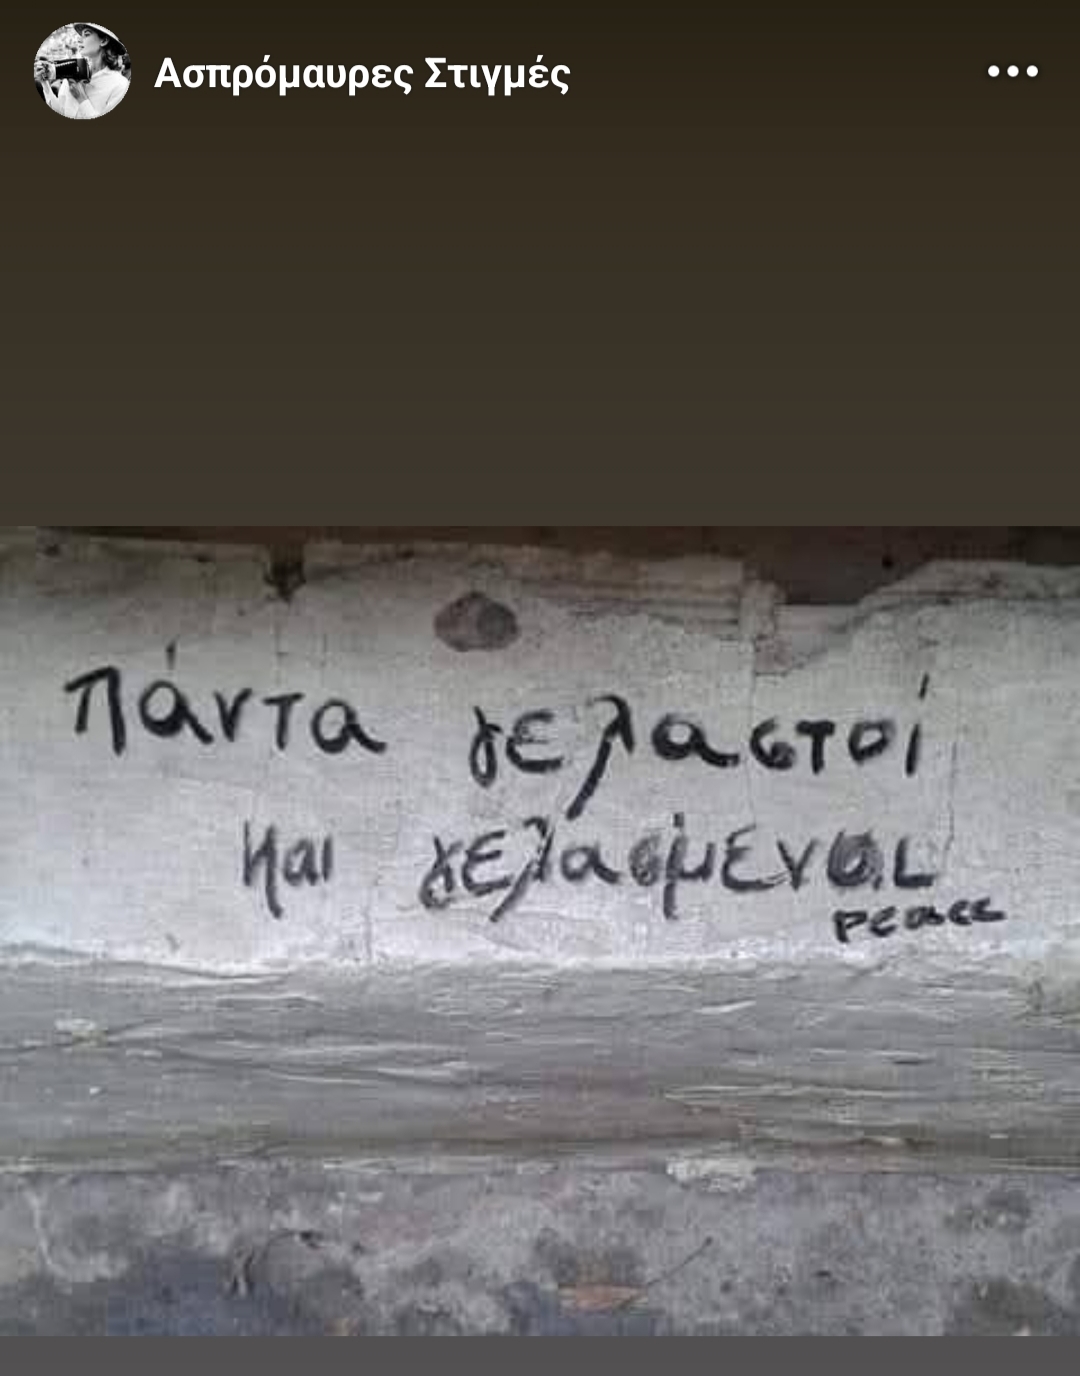 Ασπρόμαυρες Στιγμές
Πάντα γελαστοί
και γελασμένοι
peace